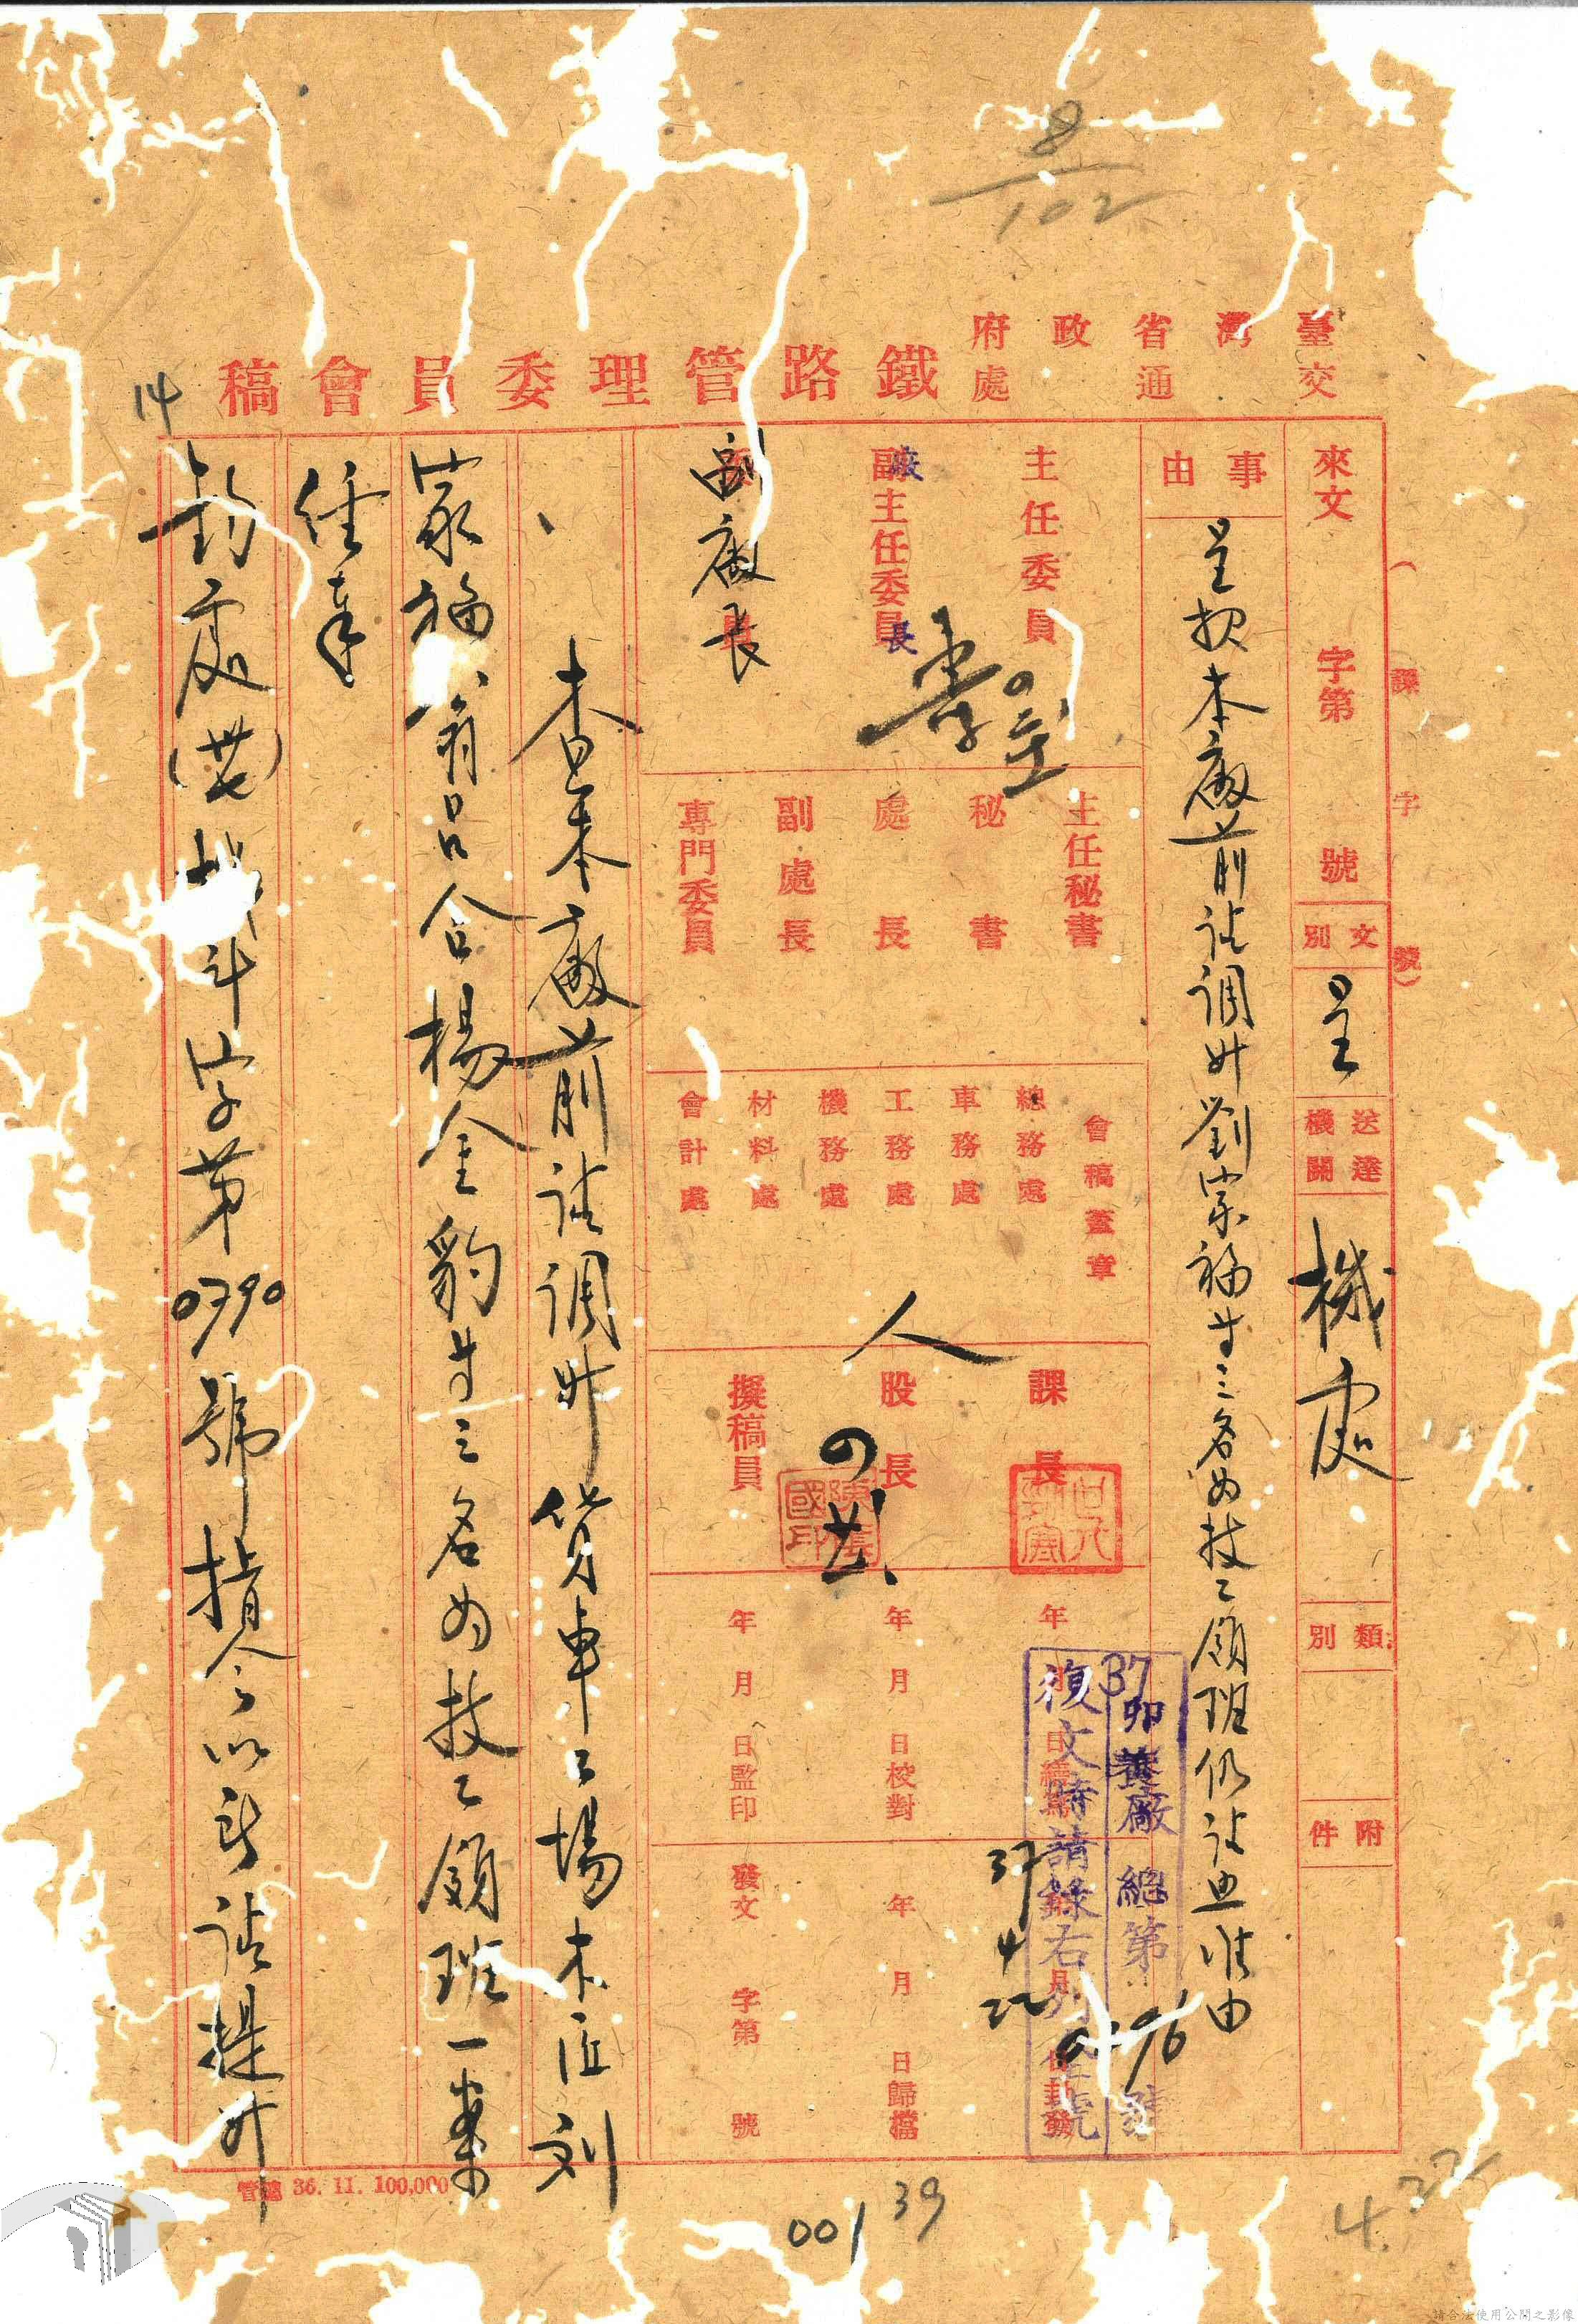 8/102
臺灣省政府
交通處
鐵路管理委員會稿
(課字號)
來文 字第 號
文別 呈
送達機關 機處
類別
附件
事由
呈報本廠前請調升劉宗福等三名為技工領班仍請照准由
主任委員
副主任委員
廠長
副廠長
主任秘書
秘書
處長
副處長
專門委員
會稿蓋章
總務處
車務處
工務處
機務處
材料處
會計處
人
課長
股長
擬稿員
年 月 日繕寫
年 月 日校對
年 月 日監印
年 月 日封發
年 月 日歸檔
發文 字第 號
37卯養廠總第 號
復文時請錄右列 號
37 4 22
查本廠前請調升貨車工場木匠劉
宗福 翁呂合楊金豹等三名為技工領班一案
經奉
鈞處(卅七) 字第0390號指令以所請提升
14
管總 36. 11. 100,000
001
39
4 22
請合法使用公開之影像